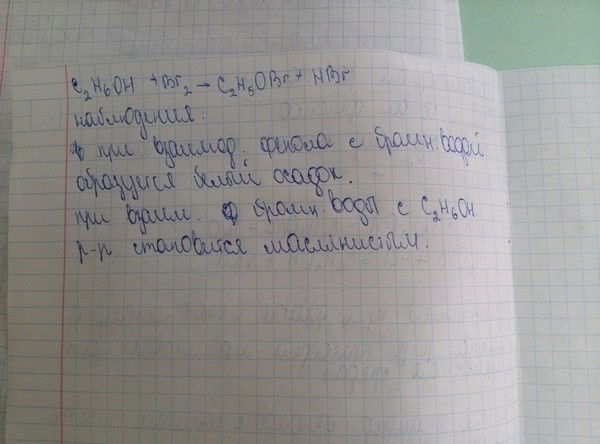 C₂H₆OH + Br₂ → C₂H₅OBr + HBr
наблюдения:
при взаимод. фенола с бромн. водой
образуется белый осадок.
при взаим. бромн. воды с C₂H₆OH
р-р становится маслянистым.